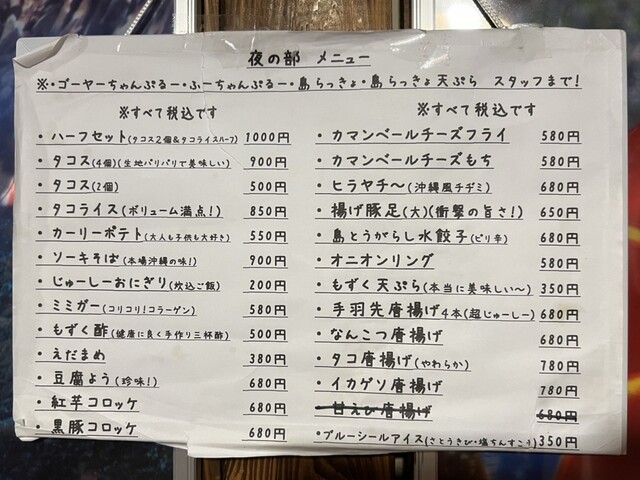 夜の部 メニュー
※・ゴーヤーちゃんぷるー・ふーちゃんぷるー・島らっきょ・島らっきょ天ぷら スタッフまで!
※すべて税込です
・ハーフセット(タコス2個&タコライスハーフ) 1000円
・タコス(4個)(生地パリパリで美味しい) 900円
・タコス(2個) 500円
・タコライス(ボリューム満点!) 850円
・カーリーポテト(大人も子供も大好き) 550円
・ソーキそば(本場沖縄の味!) 900円
・じゅーしーおにぎり(炊込ご飯) 200円
・ミミガー(コリコリ!コラーゲン) 580円
・もずく酢(健康に良く手作り三杯酢) 500円
・えだまめ 380円
・豆腐よう(珍味!) 680円
・紅芋コロッケ 680円
・黒豚コロッケ 680円
※すべて税込です
・カマンベールチーズフライ 580円
・カマンベールチーズもち 580円
・ヒラヤチ〜(沖縄風チヂミ) 680円
・揚げ豚足(大)(衝撃の旨さ!) 650円
・島とうがらし水餃子(ピリ辛) 680円
・オニオンリング 580円
・もずく天ぷら(本当に美味しい〜) 350円
・手羽先唐揚げ4本(超じゅーしー) 680円
・なんこつ唐揚げ 680円
・タコ唐揚げ(やわらか) 780円
・イカゲソ唐揚げ 780円
・甘えび唐揚げ 680円
・ブルーシールアイス(さとうきび・塩ちんすこう) 350円